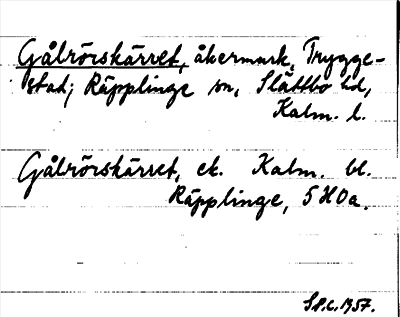 Gålrörskärret, åkermark, Trygge-
stad; Räpplinge sn, Slättbo hd,
Kalm. l.
Gålrörskärret, ek. Kalm. bl.
Räpplinge, 5 H 0a.
S.P.C. 1957.